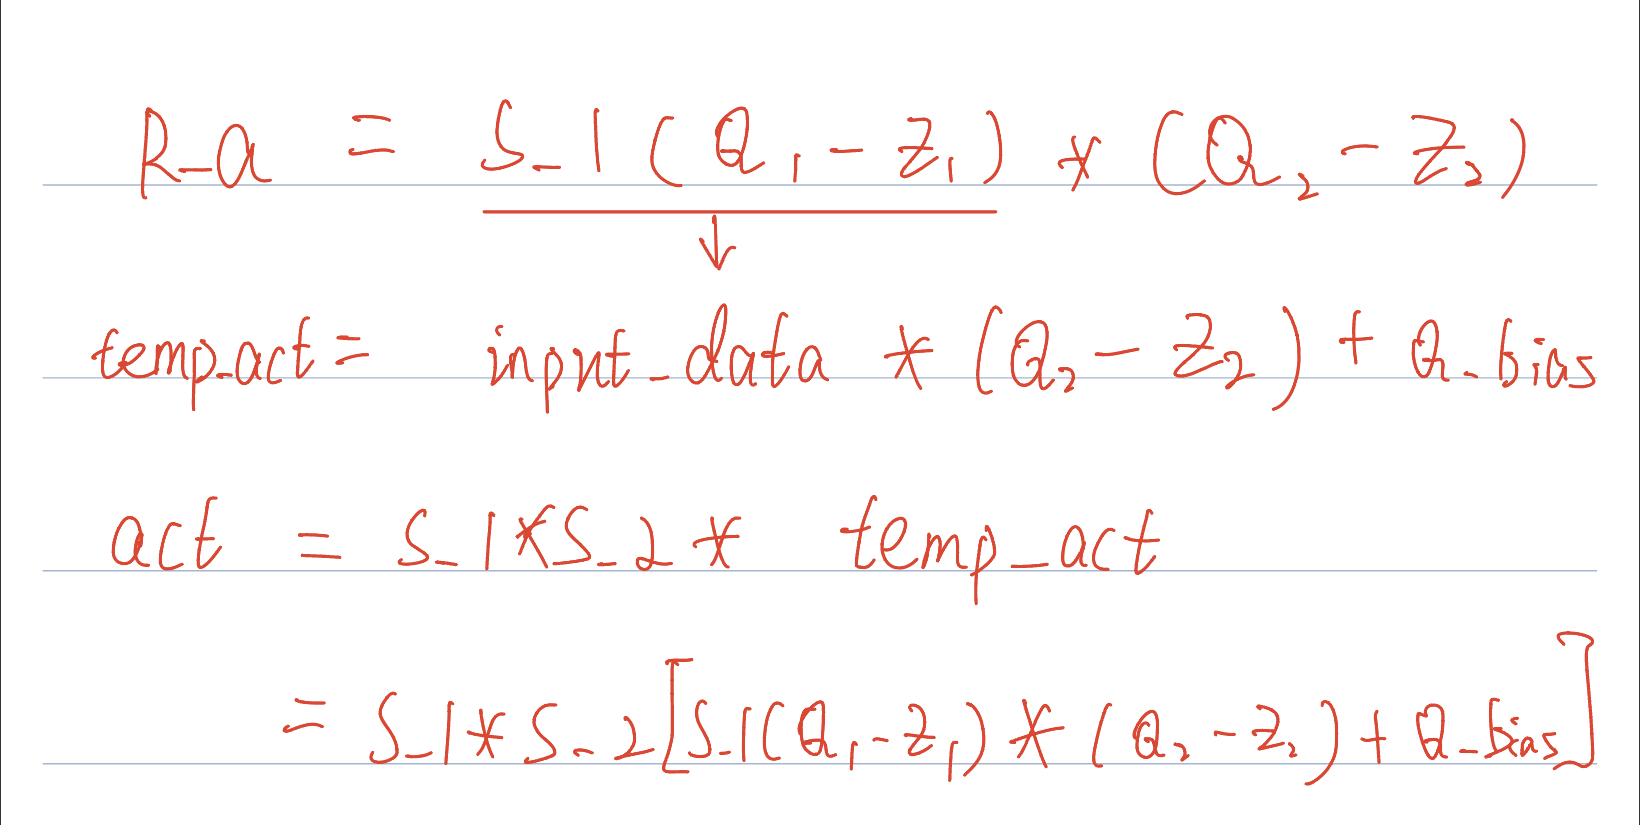 R_a = S_1(Q₁-Z₁) * (Q₂-Z₂)
↓
temp_act = input_data * (Q₂-Z₂) + Q_bias
act = S_1*S_2* temp_act
= S_1*S_2[S_1(Q₁-Z₁)*(Q₂-Z₂)+Q_bias]